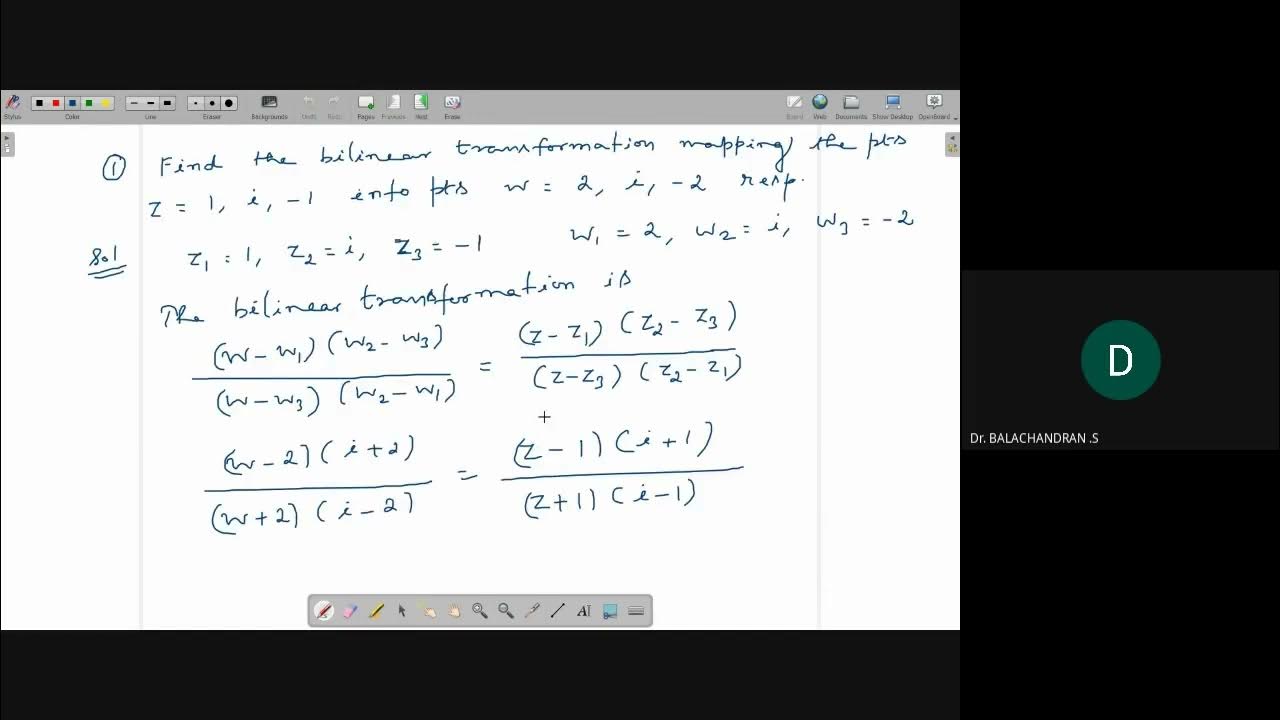 Stylus Color Line Eraser Backgrounds Undo Redo Pages Previous Next Erase Board Web Documents Show Desktop OpenBoard
① Find the bilinear transformation mapping the pts
z = 1, i, -1 into pts w = 2, i, -2 resp.
Sol z₁ = 1, z₂ = i, z₃ = -1 w₁ = 2, w₂ = i, w₃ = -2
The bilinear transformation is
(w - w₁) (w₂ - w₃) / (w - w₃) (w₂ - w₁) = (z - z₁) (z₂ - z₃) / (z - z₃) (z₂ - z₁)
(w - 2) (i + 2) / (w + 2) (i - 2) = (z - 1) (i + 1) / (z + 1) (i - 1)
AI
D
Dr. BALACHANDRAN .S